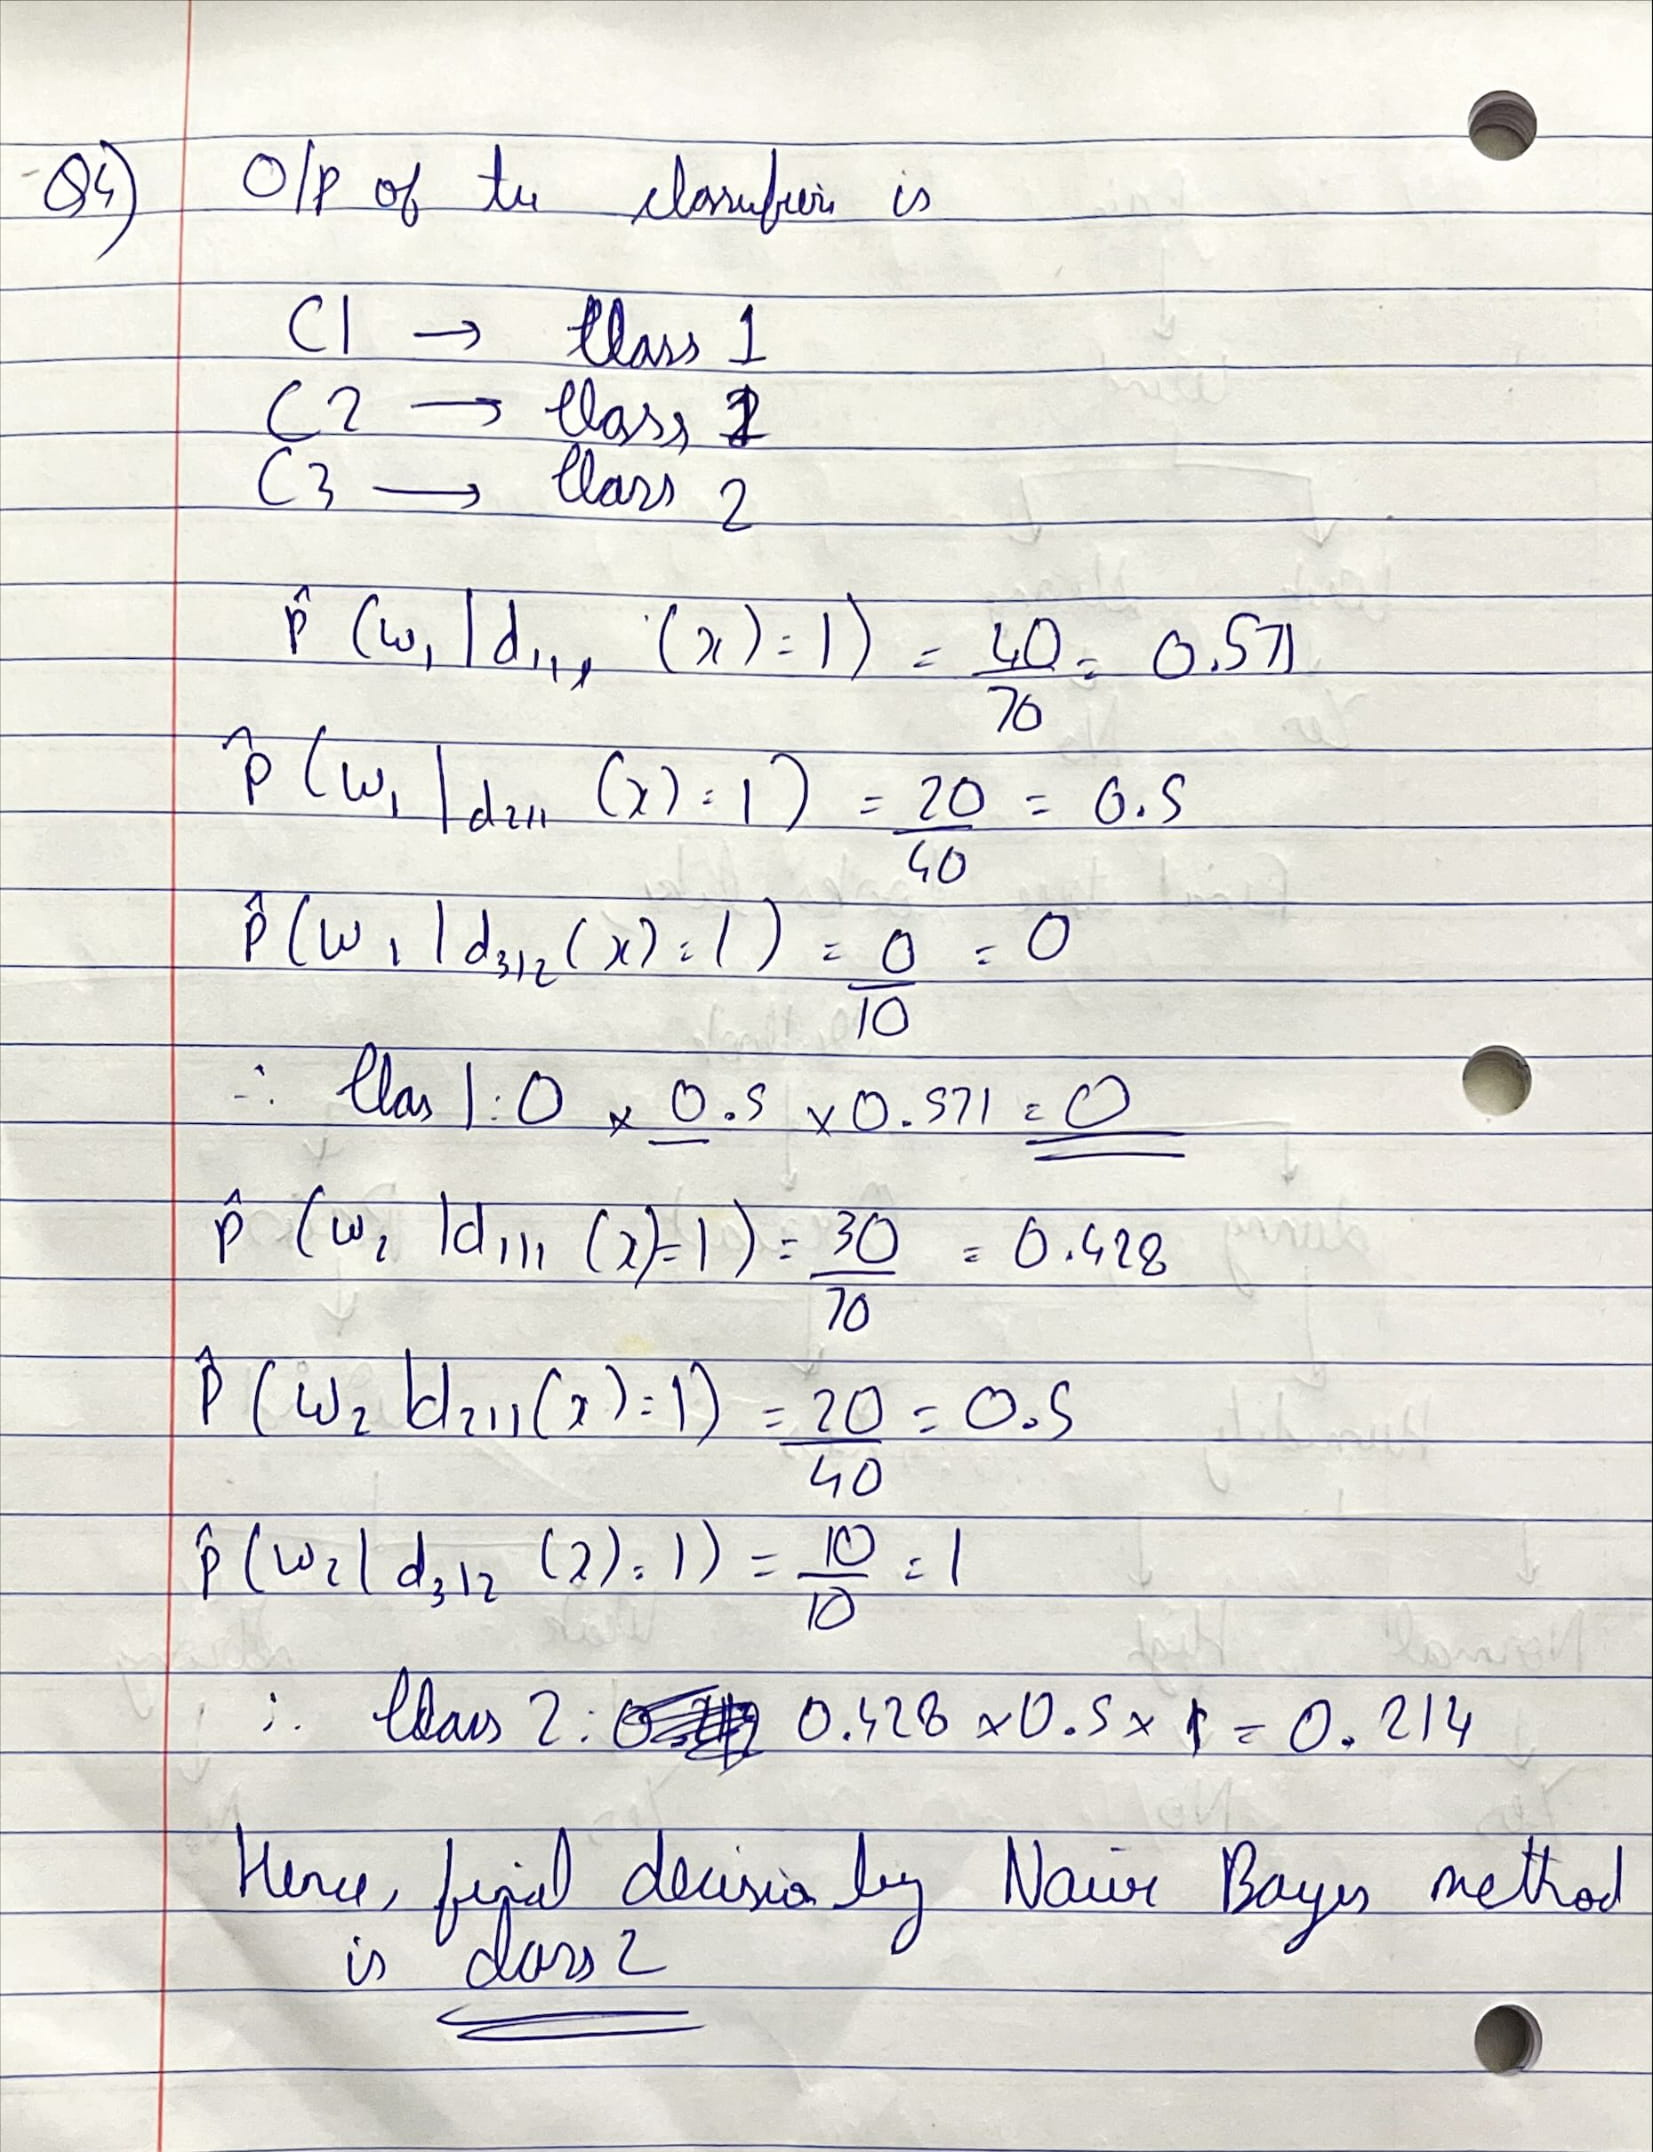 Q4) O/p of the classifier is
C1 → Class 1
C2 → Class 1
C3 → Class 2
p̂ (ω₁ | d₁,₁, (x) = 1) = 40/70 = 0.571
p̂ (ω₁ | d₂,₁, (x) = 1) = 20/40 = 0.5
p̂ (ω₁ | d₃,₂ (x) = 1) = 0/10 = 0
∴ Clas 1: 0 × 0.5 × 0.571 = 0
p̂ (ω₂ | d₁,₁, (x) = 1) = 30/70 = 0.428
p̂ (ω₂ | d₂,₁, (x) = 1) = 20/40 = 0.5
p̂ (ω₂ | d₃,₂ (x) = 1) = 10/10 = 1
∴ Class 2: 0.428 × 0.5 × 1 = 0.214
Hence, final decision by Naive Bayes method
is class 2